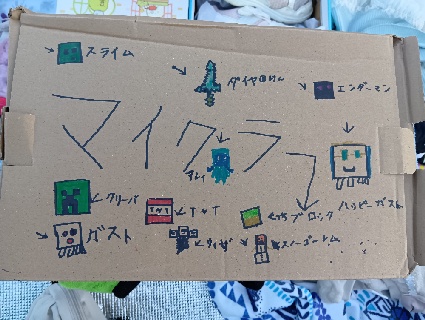 スライム
ダイヤのけん
エンダーマン
マイクラ
アレイ
クリーパ
TNT
TNT
土ブロック
ハッピーガスト
ガスト
ウィザ
スノーゴーレム